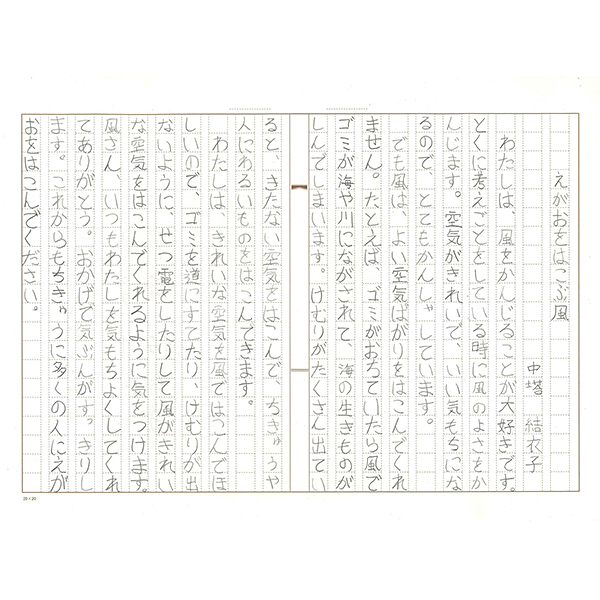 えがおをはこぶ風
中塔　結衣子
　わたしは、風をかんじることが大好きです。
とくに考えごとをしている時に風のよさをか
んじます。空気がきれいで、いい気もちにな
るので、とてもかんしゃしています。
　でも風は、よい空気ばかりをはこんでくれ
ません。たとえば、ゴミがおちていたら風で
ゴミが海や川にながされて、海の生きものが
しんでしまいます。けむりがたくさん出てい
ると、きたない空気をはこんで、ちきゅうや
人にわるいものをはこんできます。
　わたしは、きれいな空気を風ではこんでほ
しいので、ゴミを道にすてたり、けむりが出
ないように、せつ電をしたりして風がきれい
な空気をはこんでくれるように気をつけます。
風さん、いつもわたしを気もちよくしてくれ
てありがとう。おかげで気ぶんがすっきりし
ます。これからもちきゅうに多くの人にえが
おをはこんでください。
20×20